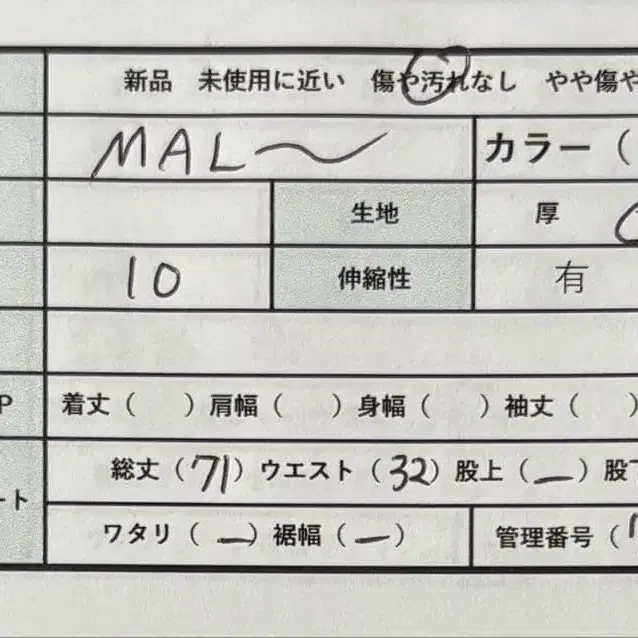 新品 未使用に近い 傷や汚れなし やや傷や
MAL〜 カラー（
生地 厚
10 伸縮性 有
P 着丈（ ）肩幅（ ）身幅（ ）袖丈（ ）
総丈（71）ウエスト（32）股上（—）股下
ート
ワタリ（—）裾幅（—） 管理番号（